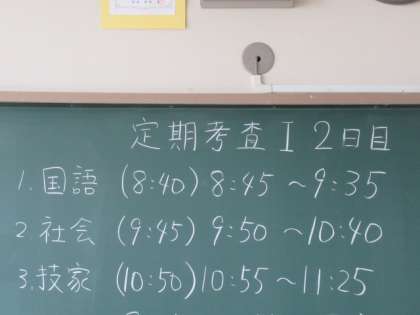 定期考査Ⅰ 2日目
1.国語 (8:40) 8:45 ～9:35
2.社会 (9:45) 9:50 ～10:40
3.技家 (10:50) 10:55 ～11:25